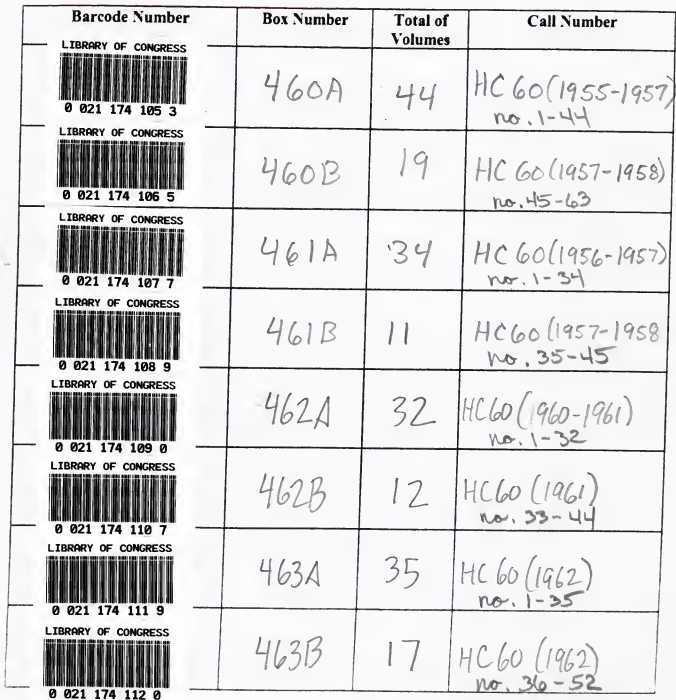 Barcode Number Box Number Total of Volumes Call Number
LIBRARY OF CONGRESS
0 021 174 105 3
460A 44 HC 60 (1955-1957)
no. 1-44
LIBRARY OF CONGRESS
0 021 174 106 5
460B 19 HC 60 (1957-1958)
no. 45-63
LIBRARY OF CONGRESS
0 021 174 107 7
461A 34 HC 60 (1956-1957)
no. 1-34
LIBRARY OF CONGRESS
0 021 174 108 9
461B 11 HC 60 (1957-1958
no. 35-45
LIBRARY OF CONGRESS
0 021 174 109 0
462A 32 HC60 (1960-1961)
no. 1-32
LIBRARY OF CONGRESS
0 021 174 110 7
462B 12 HC60 (1961)
no. 33-44
LIBRARY OF CONGRESS
0 021 174 111 9
463A 35 HC 60 (1962)
no. 1-35
LIBRARY OF CONGRESS
0 021 174 112 0
463B 17 HC 60 (1962)
no. 36-52